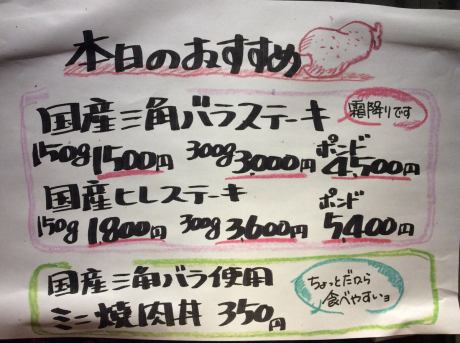 本日のおすすめ
国産三角バラステーキ 霜降りです
150g 1500円 300g 3,000円 ポンド 4,500円
国産ヒレステーキ
150g 1800円 300g 3,600円 ポンド 5,400円
国産三角バラ使用
ミニ焼肉丼 350円
ちょっとだから
食べやすいョ